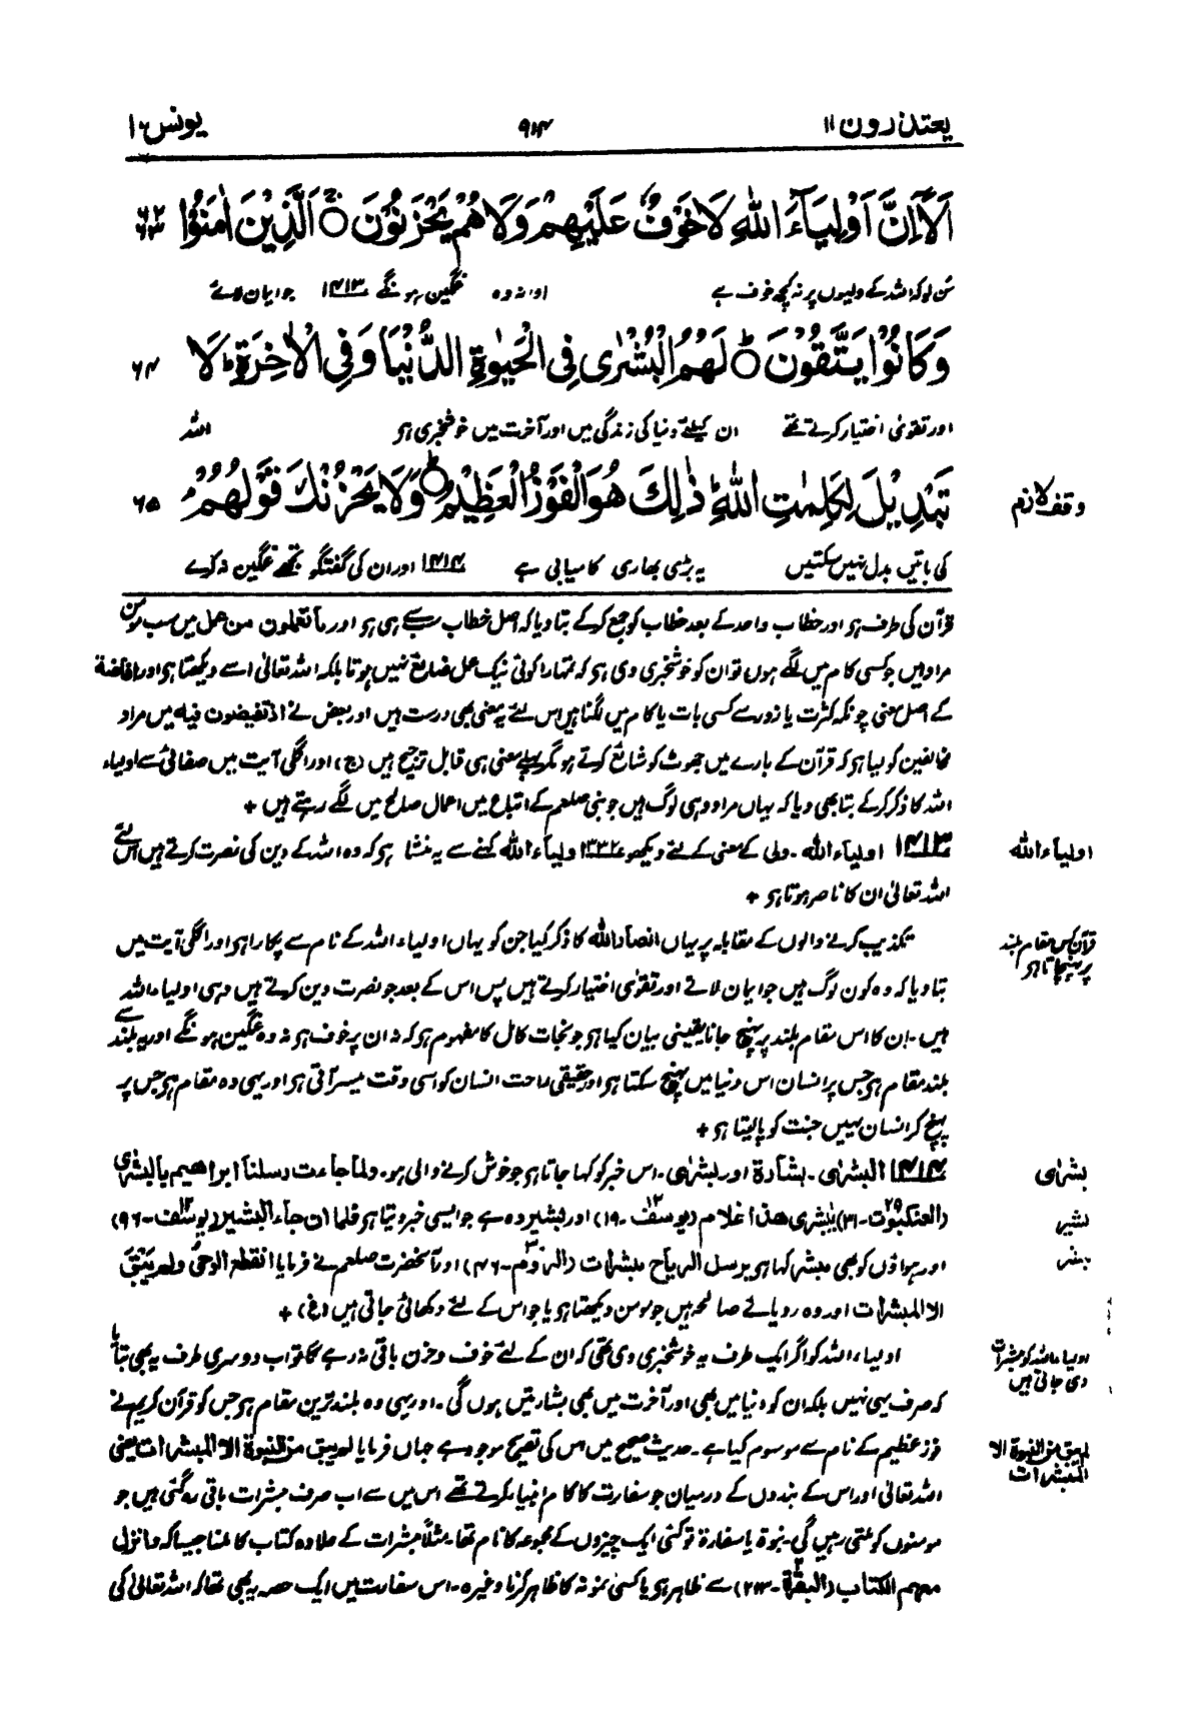 یعتذرون ۱۱
۹۱۴
یونس ۱۰
اَلَآ اِنَّ اَوْلِیَآءَ اللّٰهِ لَا خَوْفٌ عَلَیْهِمْ وَلَا هُمْ یَحْزَنُوْنَ ۝ اَلَّذِیْنَ اٰمَنُوْا
۶۲
۶۳
سُن لو کہ اللہ کے ولیوں پر نہ کچھ خوف ہے اور نہ وہ غمگین ہونگے ۱۴۱۳ جو ایمان لائے
وَكَانُوْا یَتَّقُوْنَ ۝ لَهُمُ الْبُشْرٰی فِی الْحَیٰوةِ الدُّنْیَا وَفِی الْاٰخِرَةِ ؕ لَا
۶۴
اور تقویٰ اختیار کرتے تھے ان کیلئے دنیا کی زندگی میں اور آخرت میں خوشخبری ہو اللہ
تَبْدِیْلَ لِكَلِمٰتِ اللّٰهِ ؕ ذٰلِكَ هُوَ الْفَوْزُ الْعَظِیْمُ ۝ وَلَا یَحْزُنْكَ قَوْلُهُمْ ۘ
۶۵
وقف لازم
کی باتیں بدل نہیں سکتیں یہ بڑی بھاری کامیابی ہے ۱۴۱۴ اور ان کی گفتگو تجھے غمگین نہ کرے
قرآن کی طرف ہو اور خطاب واحد کے بعد خطاب کو جمع کرکے بتا دیا کہ اصل خطاب سب سے ہی ہو اور ما تعملون من عمل میں سب مومن
مراد ہیں جو کسی کام میں لگے ہوں تو ان کو خوشخبری دی ہو کہ تمہارا کوئی نیک عمل ضایع نہیں ہوتا بلکہ اللہ تعالیٰ اسے دیکھتا ہو اور افاضة
کے اصل معنی چونکہ کثرت یا زور سے کسی بات یا کام میں لگنا ہیں اس لئے یہ معنی بھی درست ہیں اور بعض نے اذ تفیضون فیه میں مراد
مخالفین کو لیا ہو کہ قرآن کے بارے میں جھوٹ کو شایع کرتے ہو مگر پہلے معنی ہی قابل ترجیح ہیں (ج) اور اگلی آیت میں صفائی سے اولیاء
اللہ کا ذکر کرکے بتا بھی دیا کہ یہاں مراد وہی لوگ ہیں جو نبی صلعم کے اتباع میں اعمال صالح میں لگے رہتے ہیں +
اولیاء اللہ
۱۴۱۳ اولیاء اللہ۔ ولی کے معنی کے لئے دیکھو ۳۳۲ اولیاء اللہ کہنے سے یہ منشا ہو کہ وہ اللہ کے دین کی نصرت کرتے ہیں اس لئے
اللہ تعالیٰ ان کا ناصر ہوتا ہو +
قرآن کس مقام بلند
پر پہنچاتا ہو
تکذیب کرنے والوں کے مقابلہ پر یہاں انصار اللہ کا ذکر کیا جن کو یہاں اولیاء اللہ کے نام سے پکارا ہو اور اگلی آیت میں
بتا دیا کہ وہ کون لوگ ہیں جو ایمان لاتے اور تقویٰ اختیار کرتے ہیں پس اس کے بعد جو نصرت دین کرتے ہیں وہی اولیاء اللہ
ہیں۔ ان کا اس مقام بلند پر پہنچ جانا یقینی بیان کیا ہو جو نجات کامل کا مفہوم ہو کہ نہ ان پر خوف ہو نہ وہ غمگین ہونگے اور یہ بلند سے
بلند مقام ہو جس پر انسان اس دنیا میں پہنچ سکتا ہو اور حقیقی راحت انسان کو اسی وقت میسر آتی ہو اور یہی وہ مقام ہو جس پر
پہنچ کر انسان یہیں جنت کو پا لیتا ہو +
بشرٰی
۱۴۱۴ البشرٰی۔ بشارة اور بشرٰی۔ اس خبر کو کہا جاتا ہو جو خوش کرنے والی ہو۔ ولما جاءت رسلنا ابراهیم بالبشرٰی
بشیر
(العنکبوت۔ ۳۱) یبشرٰی هذا غلام (یوسف۔ ۱۹) اور بشیر وہ ہے جو ایسی خبر دیتا ہو فلما ان جاء البشیر (یوسف۔ ۹۶)
مبشر
اور ہواؤں کو بھی مبشر کہا ہو یرسل الریاح مبشرات (الروم۔ ۴۶) اور آنحضرت صلعم نے فرمایا انقطع الوحی ولم یبق
الا المبشرات اور وہ رویائے صالحہ ہیں جو مومن دیکھتا ہو یا جو اس کے لئے دکھائی جاتی ہیں (غ) +
اولیاء اللہ کو مبشرات
دی جاتی ہیں
اولیاء اللہ کو اگر ایک طرف یہ خوشخبری دی تھی کہ ان کے لئے خوف و حزن باقی نہ رہے گا تو اب دوسری طرف یہ بھی بتایا
کہ صرف یہی نہیں بلکہ ان کو دنیا میں بھی اور آخرت میں بھی بشارتیں ہوں گی۔ اور یہی وہ بلند ترین مقام ہو جس کو قرآن کریم نے
لم یبق من النبوة الا
المبشرات
فوز عظیم کے نام سے موسوم کیا ہے۔ حدیث صحیح میں اس کی تصریح موجود ہے جہاں فرمایا لم یبق من النبوة الا المبشرات یعنی
اللہ تعالیٰ اور اس کے بندوں کے درمیان جو سفارت کا کام انبیاء کرتے تھے اس میں سے اب صرف مبشرات باقی رہ گئی ہیں جو
مومنوں کو ملتی رہیں گی۔ نبوة یا سفارة تو کئی ایک چیزوں کے مجموعہ کا نام تھا۔ مثلاً مبشرات کے علاوہ کتاب کا ملنا جیسا کہ وانزل
معهم الکتاب (البقرة۔ ۲۱۳) سے ظاہر ہو یا کسی نمونہ کا ظاہر کرنا وغیرہ۔ اس سفارت میں ایک حصہ یہ بھی تھا کہ اللہ تعالیٰ کی